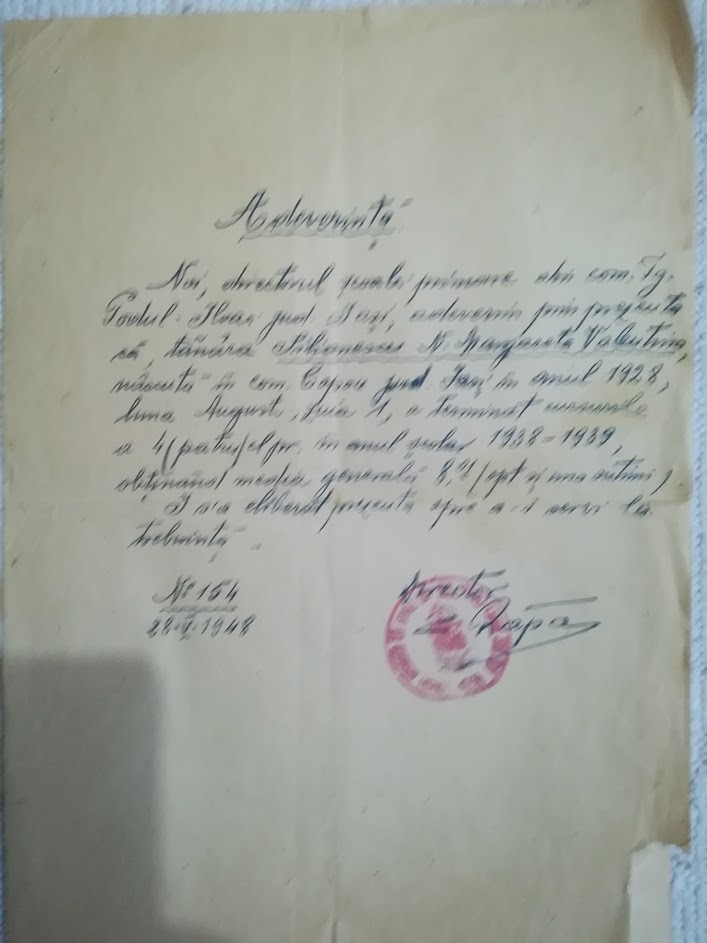 Adeverință
Noi, directorul școalei primare din com. Tg.
Podul-Iloaei jud. Iași, adeverim prin prezenta
că, tânăra N. Margareta Valentina,
născută în com. Copou jud. Iași în anul 1928,
luna August, ziua 1, a terminat cursurile
a 4 (patru) cl. pr. în anul școlar 1938-1939,
obținând media generală 8, (opt și una sutimi)
I s'a eliberat prezenta spre a-i servi la
trebuință
No 154
28.V.1948
Director,